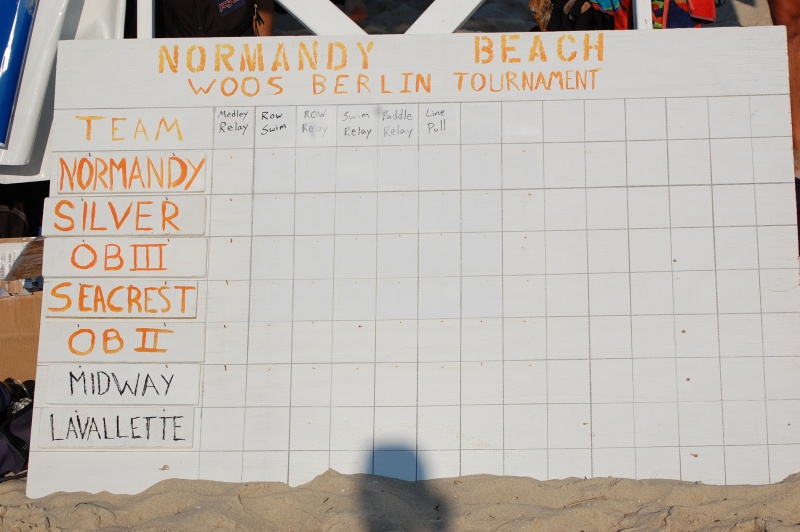 NORMANDY BEACH
WOOS BERLIN TOURNAMENT
TEAM Medley Relay Row Swim ROW Relay Swim Relay Paddle Relay Line Pull
NORMANDY
SILVER
OB III
SEACREST
OB II
MIDWAY
LAVALLETTE